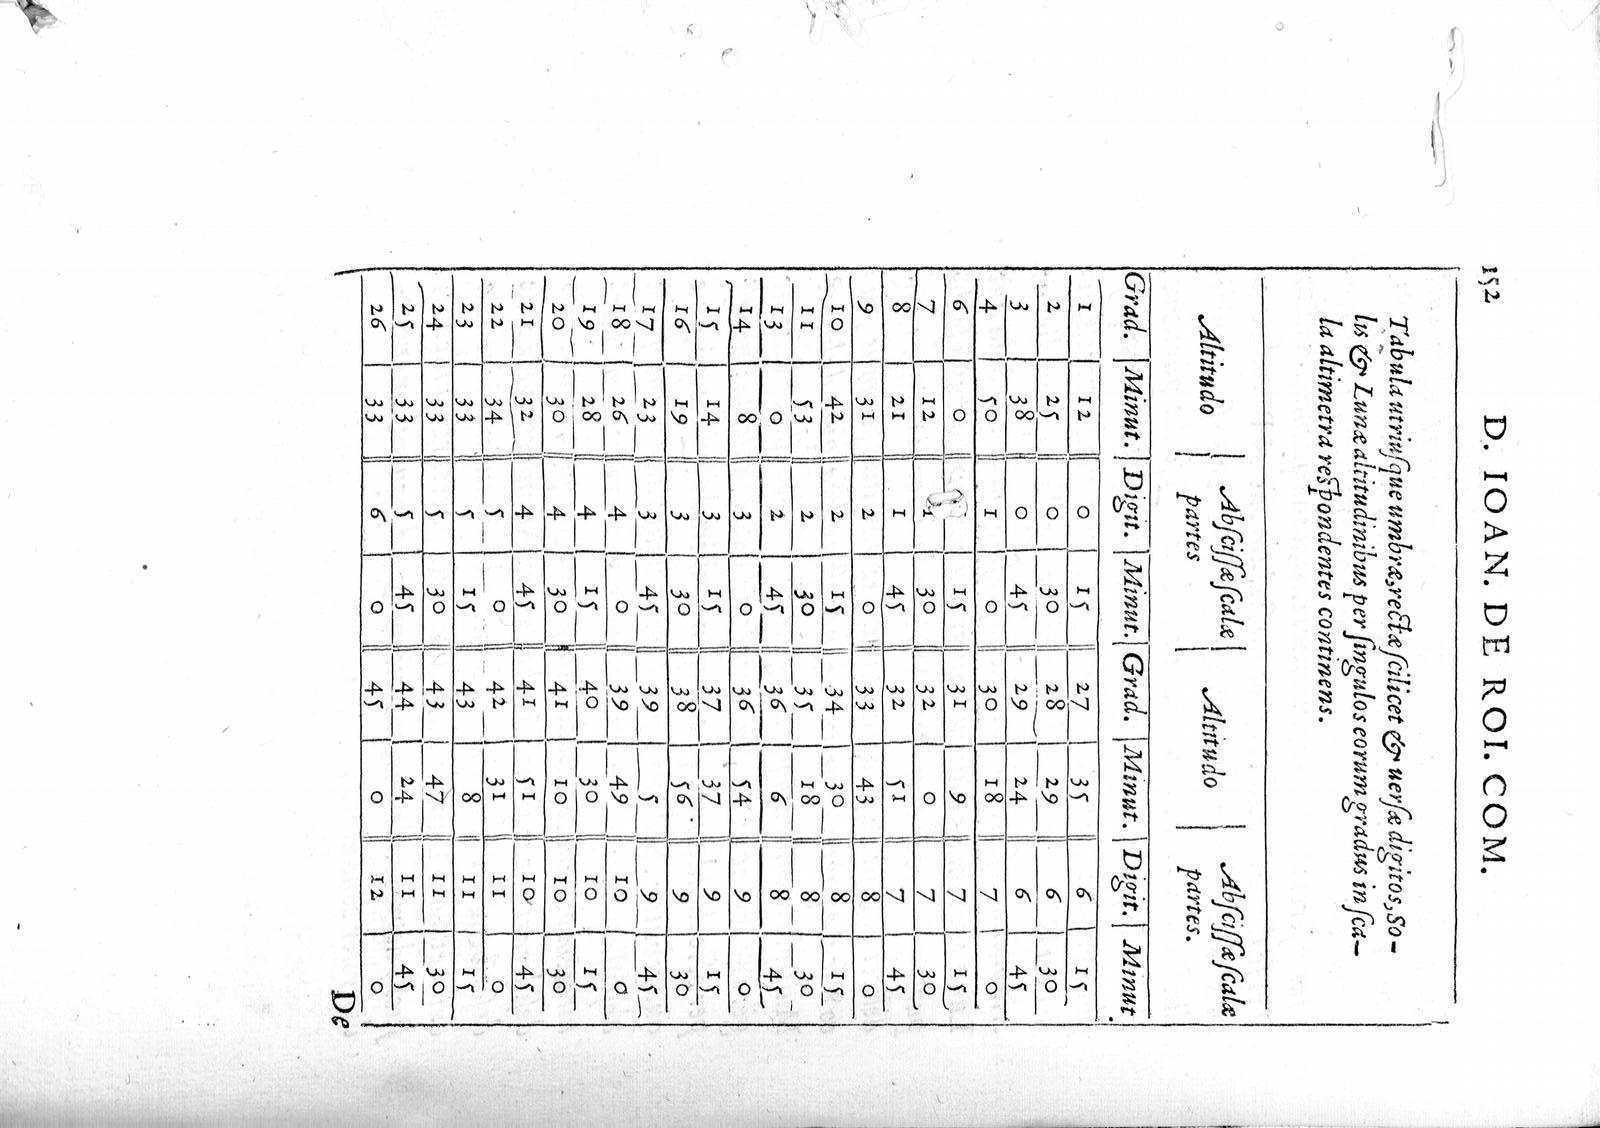 152 D. IOAN. DE ROI. COM.
Tabula utriuſque umbræ, rectæ ſcilicet & uerſæ digitos, So-
lis & Lunæ altitudinibus per ſingulos eorum gradus in ſca-
la altimetra respondentes continens.
Altitudo | Abſciſſæ ſcalæ | Altitudo | Abſciſſæ ſcalæ
partes partes.
Grad. | Minut. | Digit. | Minut. | Grad. | Minut. | Digit. | Minut.
1 12 0 15 27 35 6 15
2 25 0 30 28 29 6 30
3 38 0 45 29 24 6 45
4 50 1 0 30 18 7 0
6 0 15 31 9 7 15
7 12 1 30 32 0 7 30
8 21 1 45 32 51 7 45
9 31 2 0 33 43 8 0
10 42 2 15 34 30 8 15
11 53 2 30 35 18 8 30
13 0 2 45 36 6 8 45
14 8 3 0 36 54 9 0
15 14 3 15 37 37 9 15
16 19 3 30 38 56 9 30
17 23 3 45 39 5 9 45
18 26 4 0 39 49 10 0
19 28 4 15 40 30 10 15
20 30 4 30 41 10 10 30
21 32 4 45 41 51 10 45
22 34 5 0 42 31 11 0
23 33 5 15 43 8 11 15
24 33 5 30 43 47 11 30
25 33 5 45 44 24 11 45
26 33 6 0 45 0 12 0
De